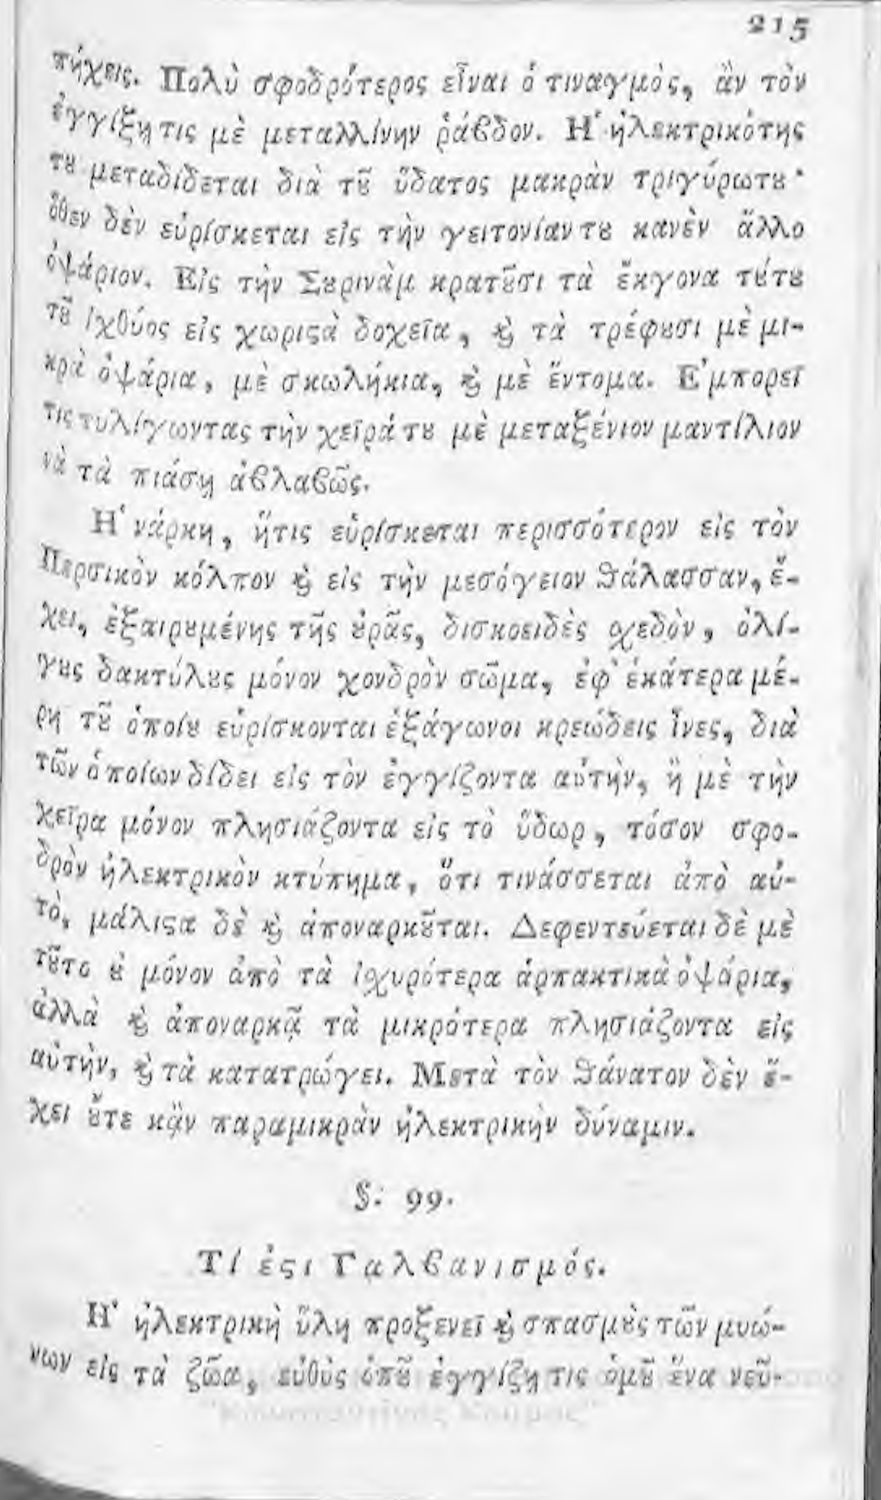 215
πήχεις. Πολὺ σφοδρότερος εἶναι ὁ τιναγμὸς, ἂν τὸν
ἐγγίξῃ τις μὲ μεταλλίνην ῥάβδον. Ἡ ἠλεκτρικότης
τȣ μεταδίδεται διὰ τȣ͂ ὕδατος μακρὰν τριγύρωτȣ·
ὅθεν δὲν εὑρίσκεται εἰς τὴν γειτονίαν τȣ κανὲν ἄλλο
ὀψάριον. Εἰς τὴν Σȣρινὰμ κρατȣ͂σι τὰ ἔκγονα τȣ́τȣ
τȣ͂ ἰχθύος εἰς χωριϛὰ δοχεῖα, ϗ̀ τὰ τρέφȣσι μὲ μι-
κρὰ ὀψάρια, μὲ σκωλήκια, ϗ̀ μὲ ἔντομα. Ἐμπορεῖ
τις τυλίγωντας τὴν χεῖρά τȣ μὲ μεταξένιον μαντίλιον
νὰ τὰ πιάσῃ ἀβλαβῶς.
Ἡ νάρκη, ἥτις εὑρίσκεται περισσότερον εἰς τὸν
Περσικὸν κόλπον ϗ̀ εἰς τὴν μεσόγειον ϑάλασσαν, ἔ-
χει, ἐξαιρȣμένης τῆς ȣ̓ρᾶς, δισκοειδὲς σχεδὸν, ὀλί-
γȣς δακτύλȣς μόνον χονδρὸν σῶμα, ἐφ' ἑκάτερα μέ-
ρη τȣ͂ ὁποίȣ εὑρίσκονται ἑξάγωνοι κρεώδεις ἶνες, διὰ
τῶν ὁποίων δίδει εἰς τὸν ἐγγίζοντα αὐτὴν, ἢ μὲ τὴν
χεῖρα μόνον πλησιάζοντα εἰς τὸ ὕδωρ, τόσον σφο-
δρὸν ἠλεκτρικὸν κτύπημα, ὅτι τινάσσεται ἀπὸ αὐ-
τὸ, μάλιϛα δὲ ϗ̀ ἀποναρκȣ͂ται. Δεφεντεύεται δὲ μὲ
τȣ͂το ȣ̓ μόνον ἀπὸ τὰ ἰσχυρότερα ἁρπακτικὰ ὀψάρια,
ἀλλὰ ϗ̀ ἀποναρκᾷ τὰ μικρότερα πλησιάζοντα εἰς
αὐτὴν, ϗ̀ τὰ κατατρώγει. Μετὰ τὸν ϑάνατον δὲν ἔ-
χει ȣ̓́τε κᾂν παραμικρὰν ἠλεκτρικὴν δύναμιν.
§. 99.
Τί ἐϛι Γαλβανισμός.
Ἡ ἠλεκτρικὴ ὕλη προξενεῖ ϗ̀ σπασμȣ̀ς τῶν μυώ-
νων εἰς τὰ ζῶα, εὐθὺς ὁπȣ͂ ἐγγίζῃ τις ὁμȣ͂ ἕνα νεῦ-